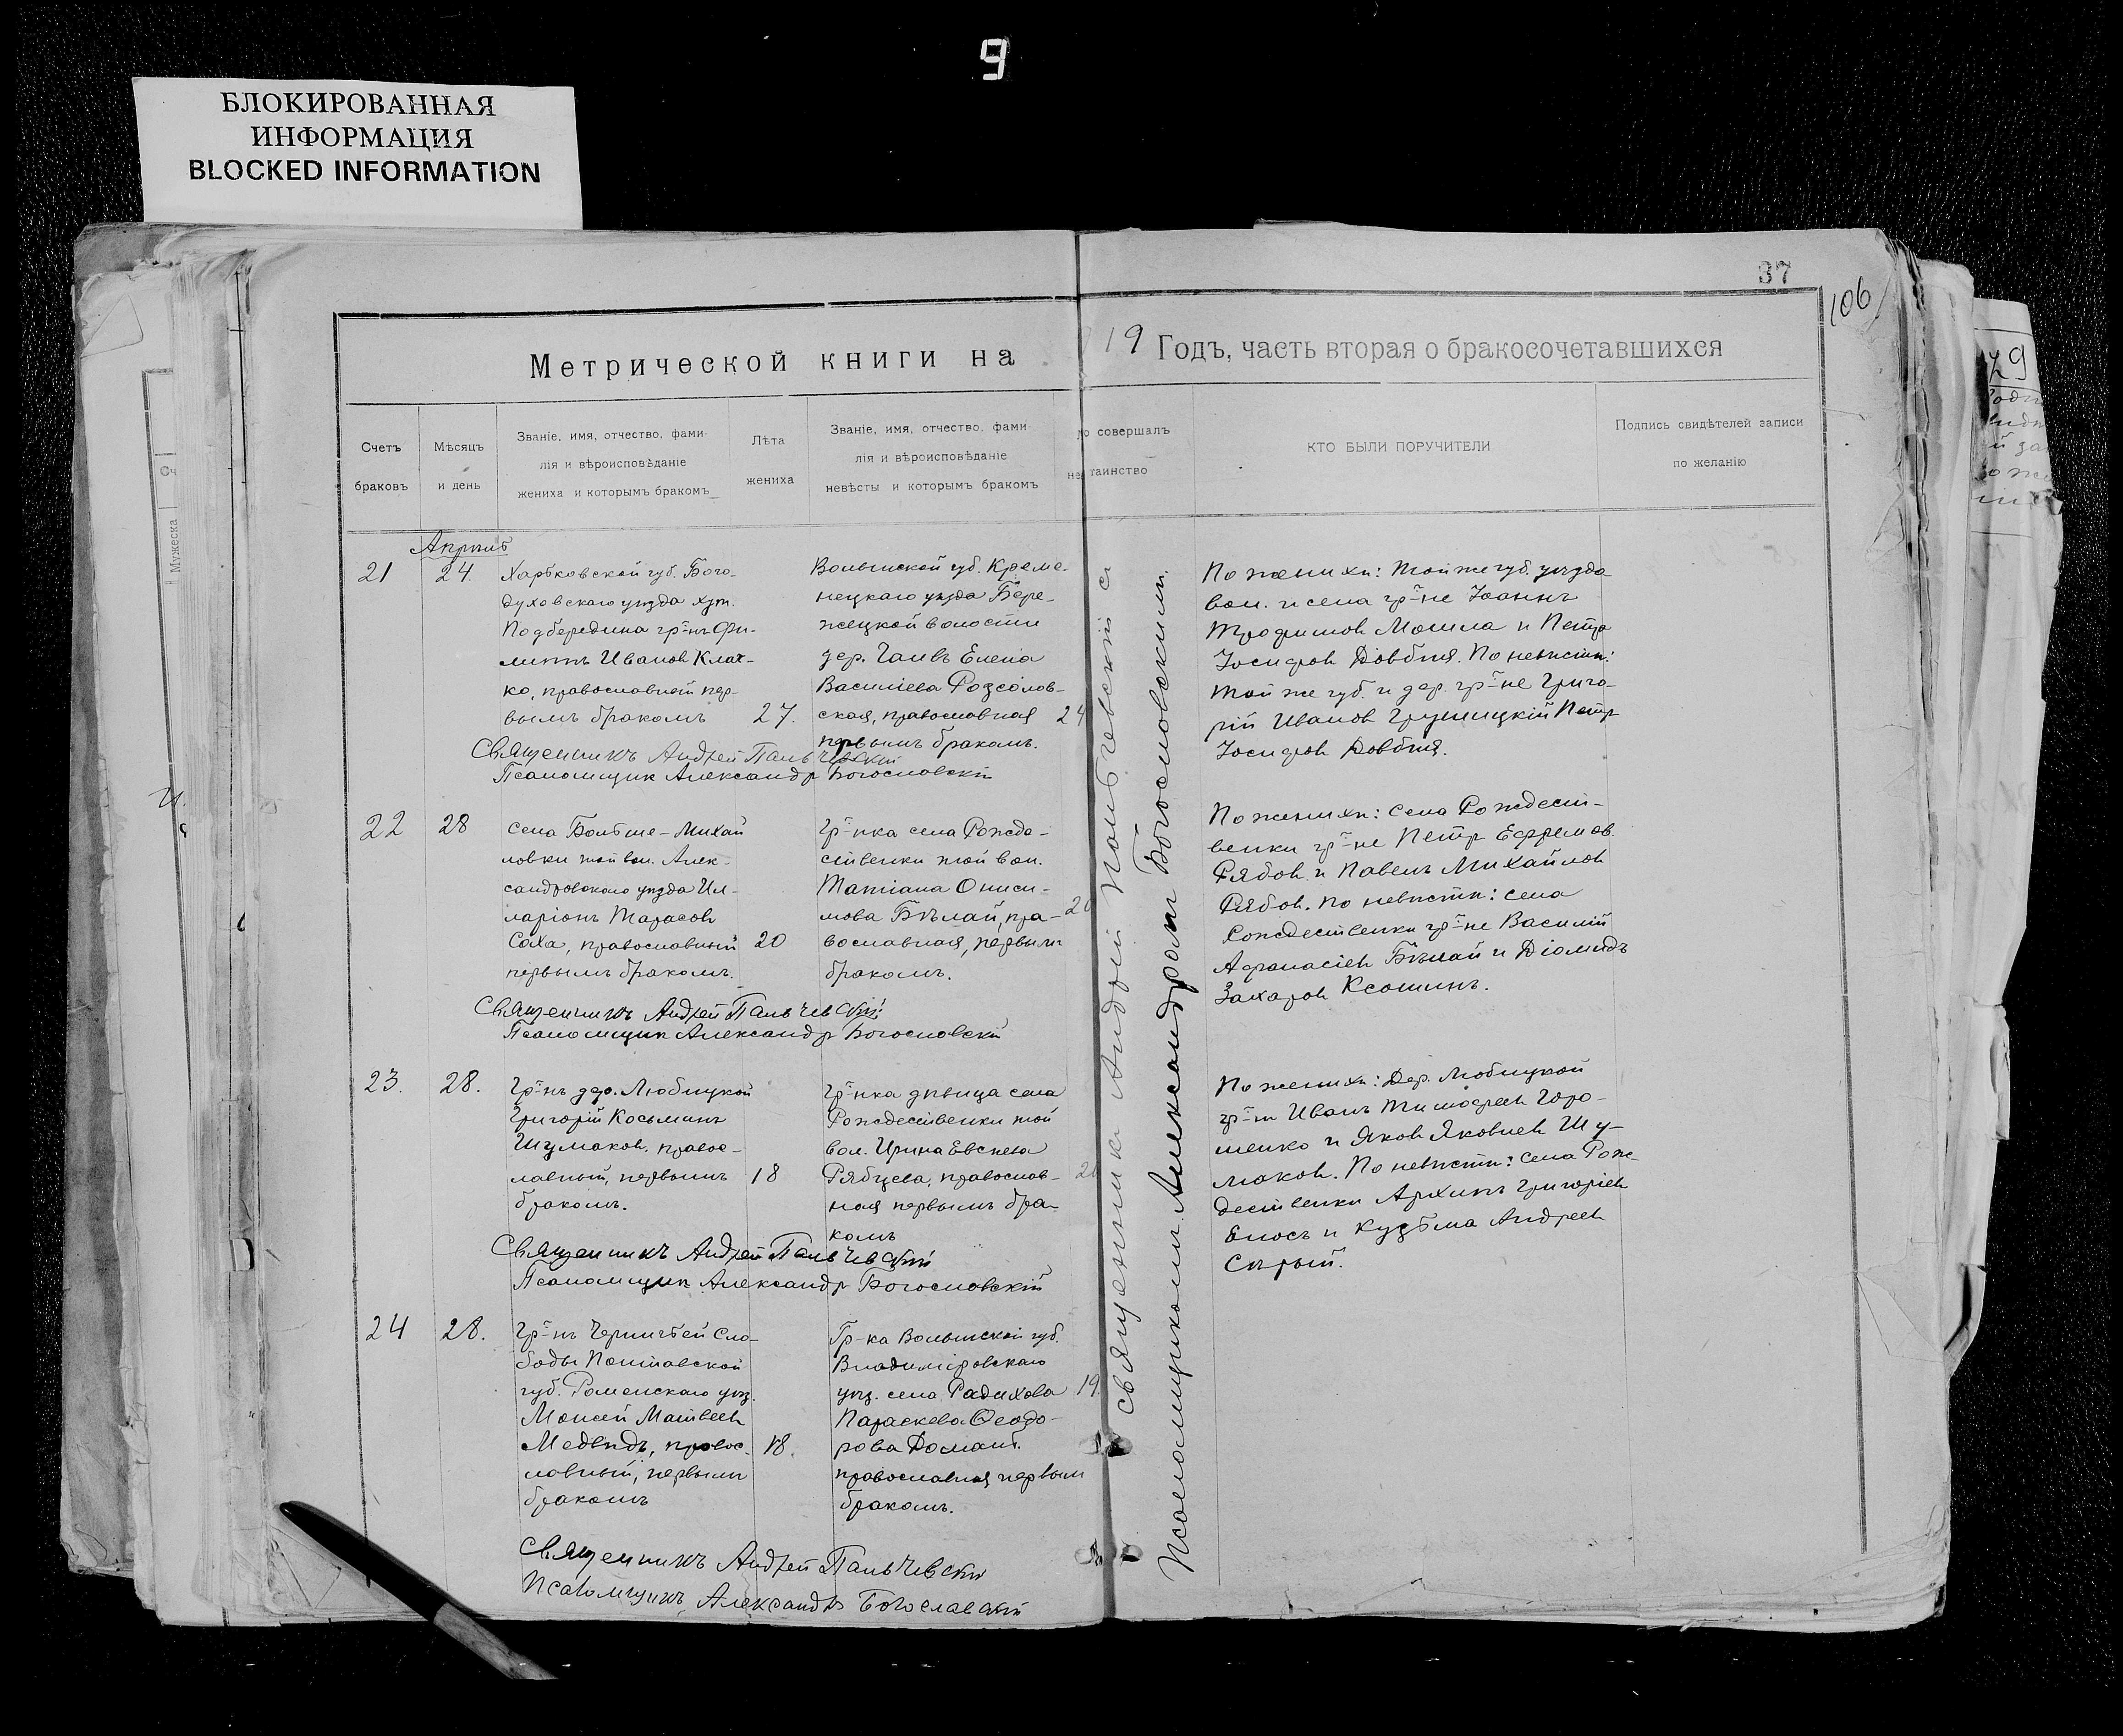 9
БЛОКИРОВАННАЯ
ИНФОРМАЦИЯ
BLOCKED INFORMATION
37
106
Метрической книги на 19 Годъ, часть вторая о бракосочетавшихся
Счетъ
браковъ
Мѣсяцъ
и день
Званіе, имя, отчество, фами-
лія и вѣроисповѣданіе
жениха и которымъ бракомъ
Лѣта
жениха
Званіе, имя, отчество, фами-
лія и вѣроисповѣданіе
невѣсты и которымъ бракомъ
то совершалъ
таинство
КТО БЫЛИ ПОРУЧИТЕЛИ
Подпись свидѣтелей записи
по желанію
Мужеска
Апрѣль
21
24
Харьковской губ. Бого-
духовскаго уѣзда хут.
Подбередина гр-нъ Фи-
липпъ Иванов Клоч-
ко, православный пер-
вымъ бракомъ
27.
Волынской губ. Креме-
нецкаго уѣзда Бере-
жецкой волости
дер. Гаивъ Елена
Василіева Розсолов-
ская, православная
первымъ бракомъ.
24
По женихѣ: той же губ. уѣзда
вол. и села гр-не Іоаннъ
Трофимов Могила и Петр
Іосифов Довбня. По невѣстѣ:
той же губ. и дер. гр-не Григо-
рій Иванов Грушицкій Петр
Іосифов Довбня.
Священникъ Андрей Пальчевскій
Псаломщик Александр Богословскій
22
28
села Больше-Михай
ловки той вол. Алек-
сандровскаго уѣзда Ил-
ларіонъ Тарасов
Саха, православный
первымъ бракомъ.
20
Гр-нка села Рожде-
ственки той вол.
Татіана Ониси-
мова Бѣлай, пра-
вославная, первымъ
бракомъ.
По женихѣ: села Рождест-
венки гр-не Петр Ефремов
Рябов и Павелъ Михайлов
Рябов. По невѣстѣ: села
Рождественки гр-не Василій
Афанасіев Бѣлай и Діомидъ
Захаров
Священникъ Андрей Пальчевскій
Псаломщик Александр Богословскій
23.
28.
Гр-нъ дер. Любицкой
Григорій Косьминъ
Шумаков, правос-
лавный, первымъ
бракомъ.
18
Гр-нка дѣвица села
Рождественки той
вол. Ирина Евсеева
Рябцева, православ-
ная первымъ бра-
комъ
По женихѣ: Дер. Любицкой
гр-не Иванъ Тимофеев Горо-
шенко и Яков Яковлев Шу-
маков. По невѣстѣ: села Рож-
дественки Архипъ Григоріев
Білосъ и Кузьма Андреев
Сѣрый.
Священникъ Андрей Пальчевскій
Псаломщик Александр Богословскій
24
28.
Гр-нъ Чернечьей Сло-
боды Полтавской
губ. Роменскаго уѣз.
Моисей Матвеев
Медвѣдь, правос-
лавный, первымъ
бракомъ
18.
Гр-ка Волынской губ.
Владиміровскаго
уѣз. села Радихова
Параскева Феодо-
рова
православная первым
бракомъ.
19.
Священникъ Андрей Пальчевскій
Псаломщикъ Александръ Богославскій
Священники Андрей Пальчевскій с
Псаломщикомъ Александромъ Богословскимъ.